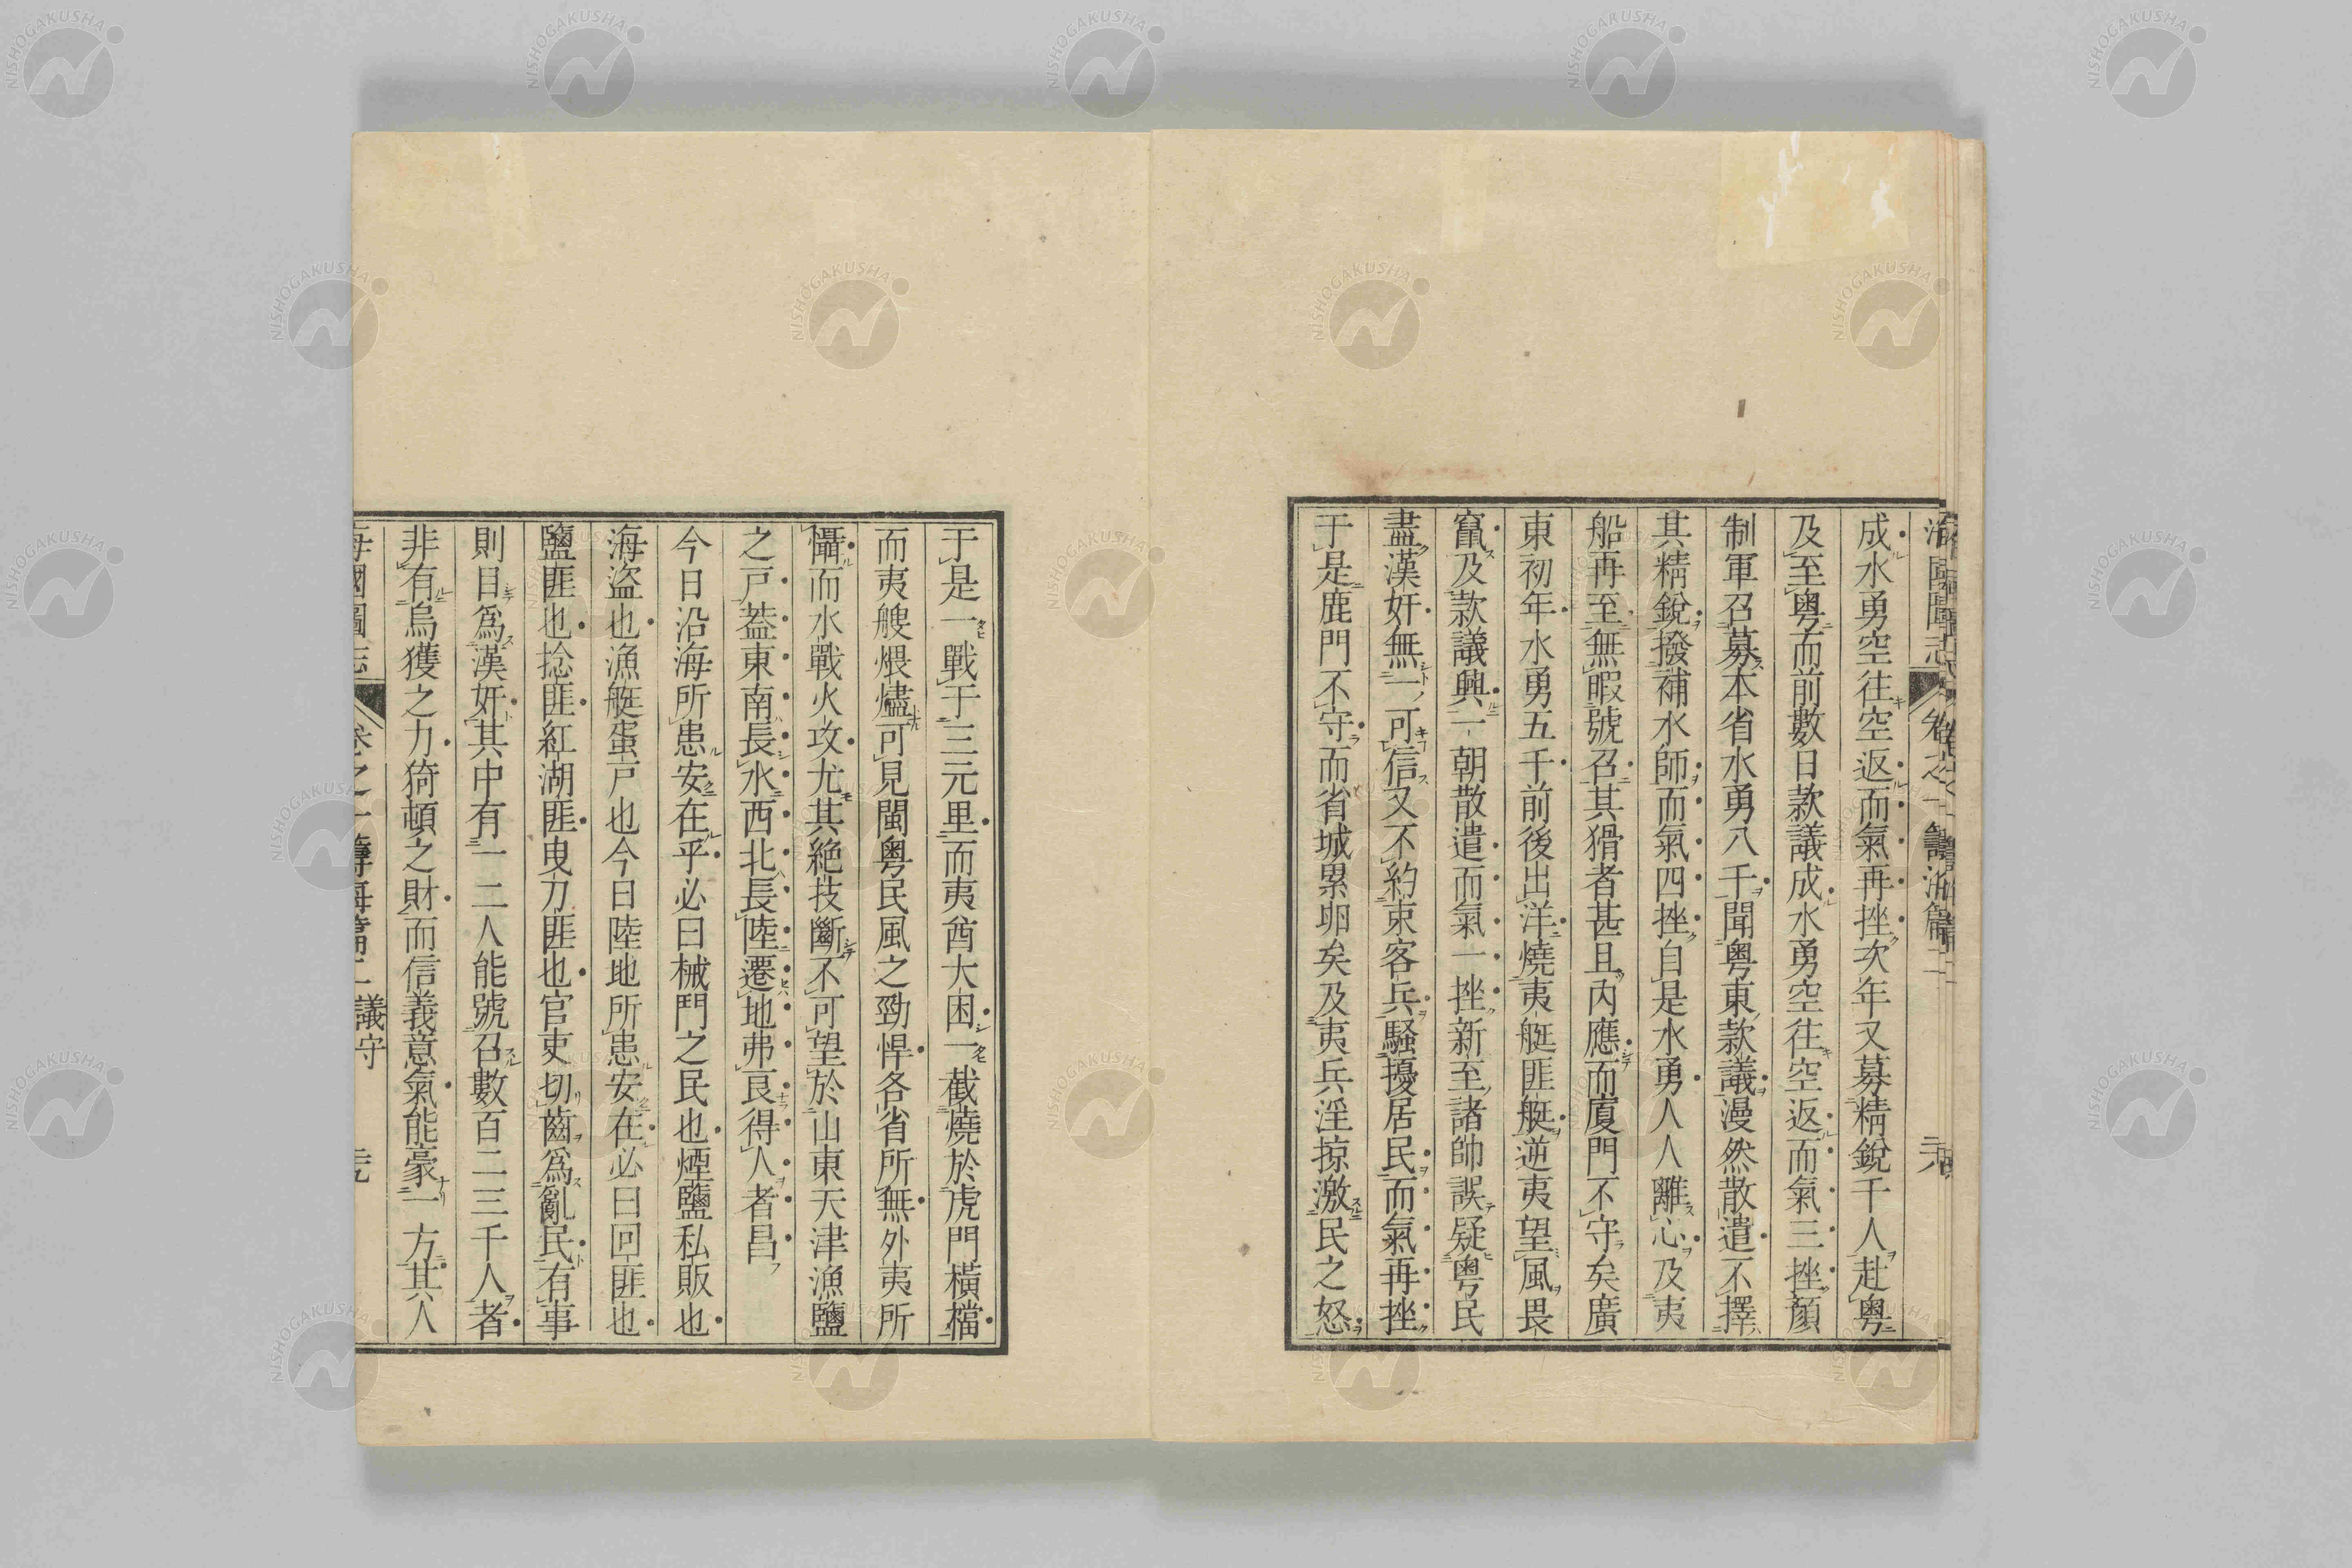 海國圖志 卷之一 籌海篇二
成水勇空往空返而氣再挫次年又募精銳千人赴粵
及至粵而前數日款議成水勇空往空返而氣三挫顏
制軍召募本省水勇八千聞粵東款議漫然散遣不擇
其精銳撥補水師而氣四挫自是水勇人人離心及夷
船再至無暇號召其猾者甚且內應而厦門不守矣廣
東初年水勇五千前後出洋燒夷艇匪艇逆夷望風畏
竄及款議興一朝散遣而氣一挫新至諸帥誤疑粵民
盡漢奸無一可信又不約束客兵騷擾居民而氣再挫
于是鹿門不守而省城累卵矣及夷兵淫掠激民之怒
于是一戰于三元里而夷酋大困一截燒於虎門橫檔
而夷艘煨燼可見閩粵民風之勁悍各省所無外夷所
懾而水戰火攻尤其絕技斷不可望於山東天津漁鹽
之戸葢東南長水西北長陸遷地弗良得人者昌
今日沿海所患安在乎必曰械鬥之民也煙鹽私販也
海盜也漁艇蛋戸也今日陸地所患安在必曰回匪也
鹽匪也捻匪紅湖匪曳刀匪也官吏切齒爲亂民有事
則目爲漢奸其中有一二人能號召數百二三千人者
非有烏獲之力猗頓之財而信義意氣能豪一方其人
海國圖志 卷之一 籌海篇二 議守
NISHOGAKUSHA